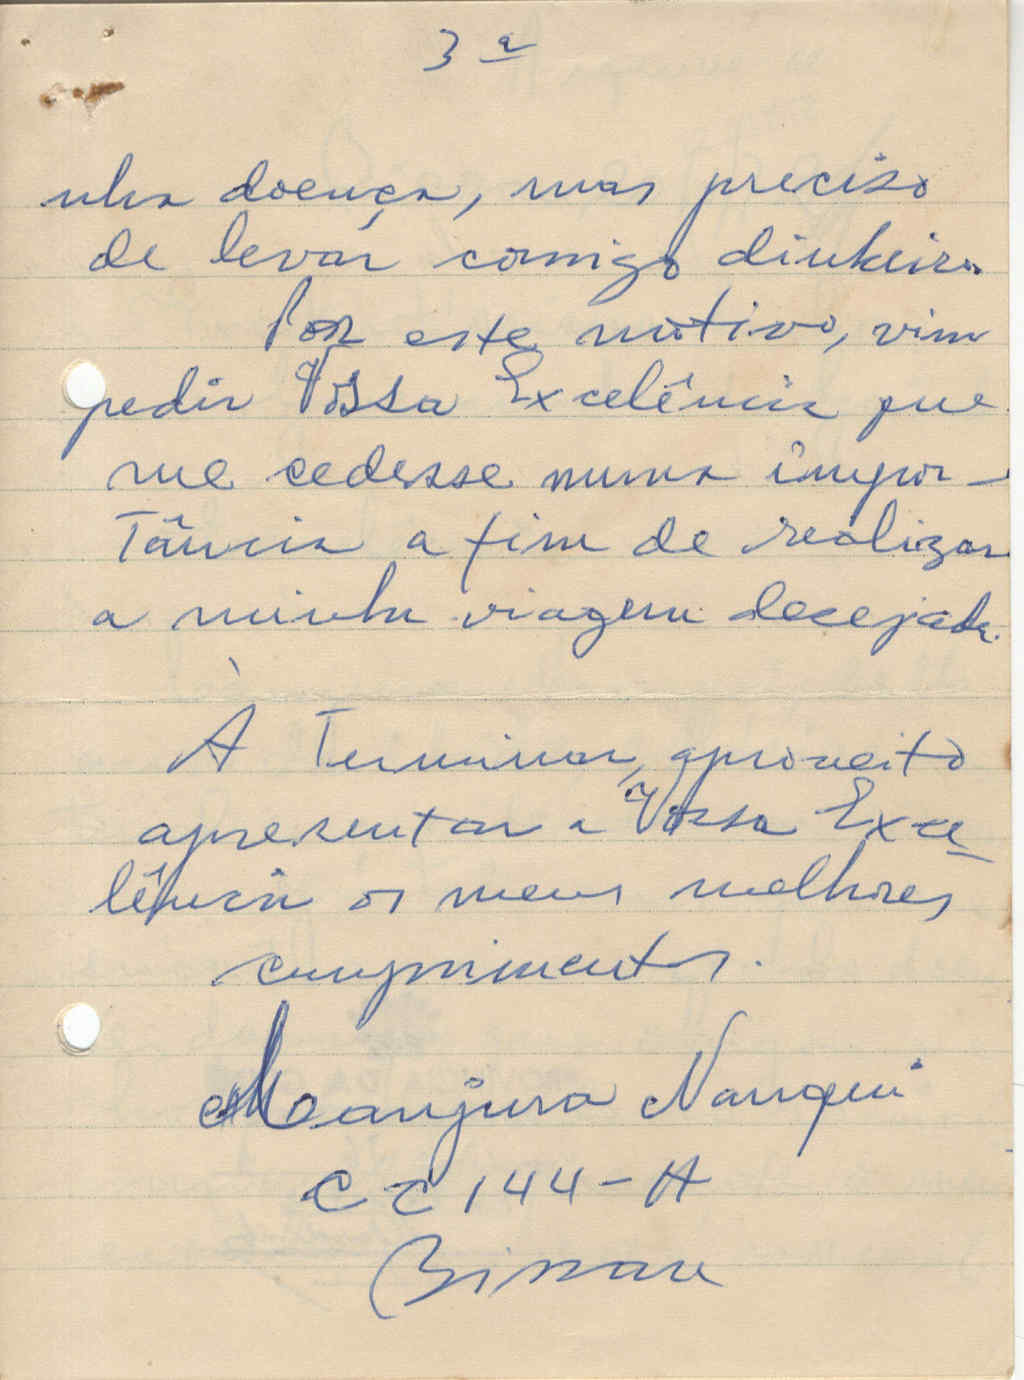 3ª
nha doença, mas preciso
de levar comigo dinheiro.
Por este motivo, vim
pedir Vossa Excelência que
me cedesse numa impor-
tância a fim de realizar
a minha viagem decejada.
À Terminar, aproveito
apresentar a Vossa Exce-
lência os meus melhores
cumprimentos.
Manjura Nanqui
CC 144-A
Bissau